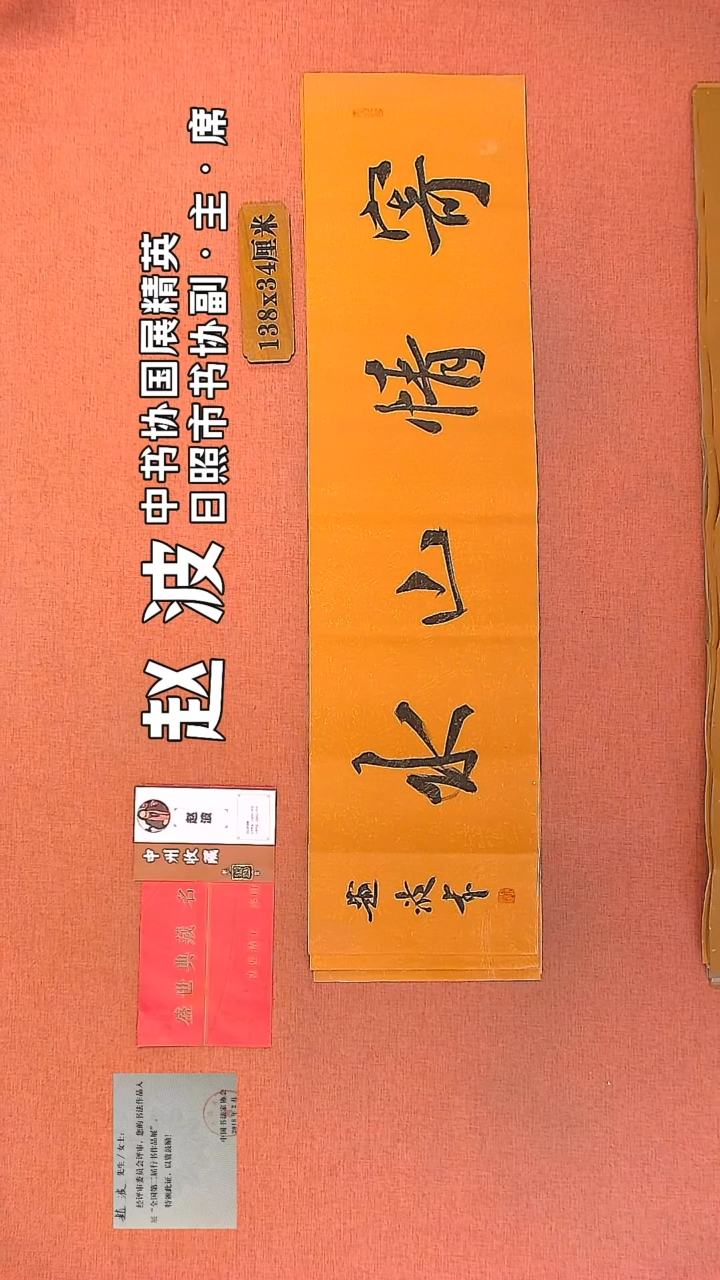 赵 波
中书协国展精英
日照市书协副·主·席
138x34厘米
寄情山水
赵波书
赵波
中州收展
盛世典藏
赵 波 先生/女士:
经评审委员会评审,您的书法作品入
展“全国第二届行书作品展”。
特颁此证,以资鼓励!
中国书法家协会
2018年2月